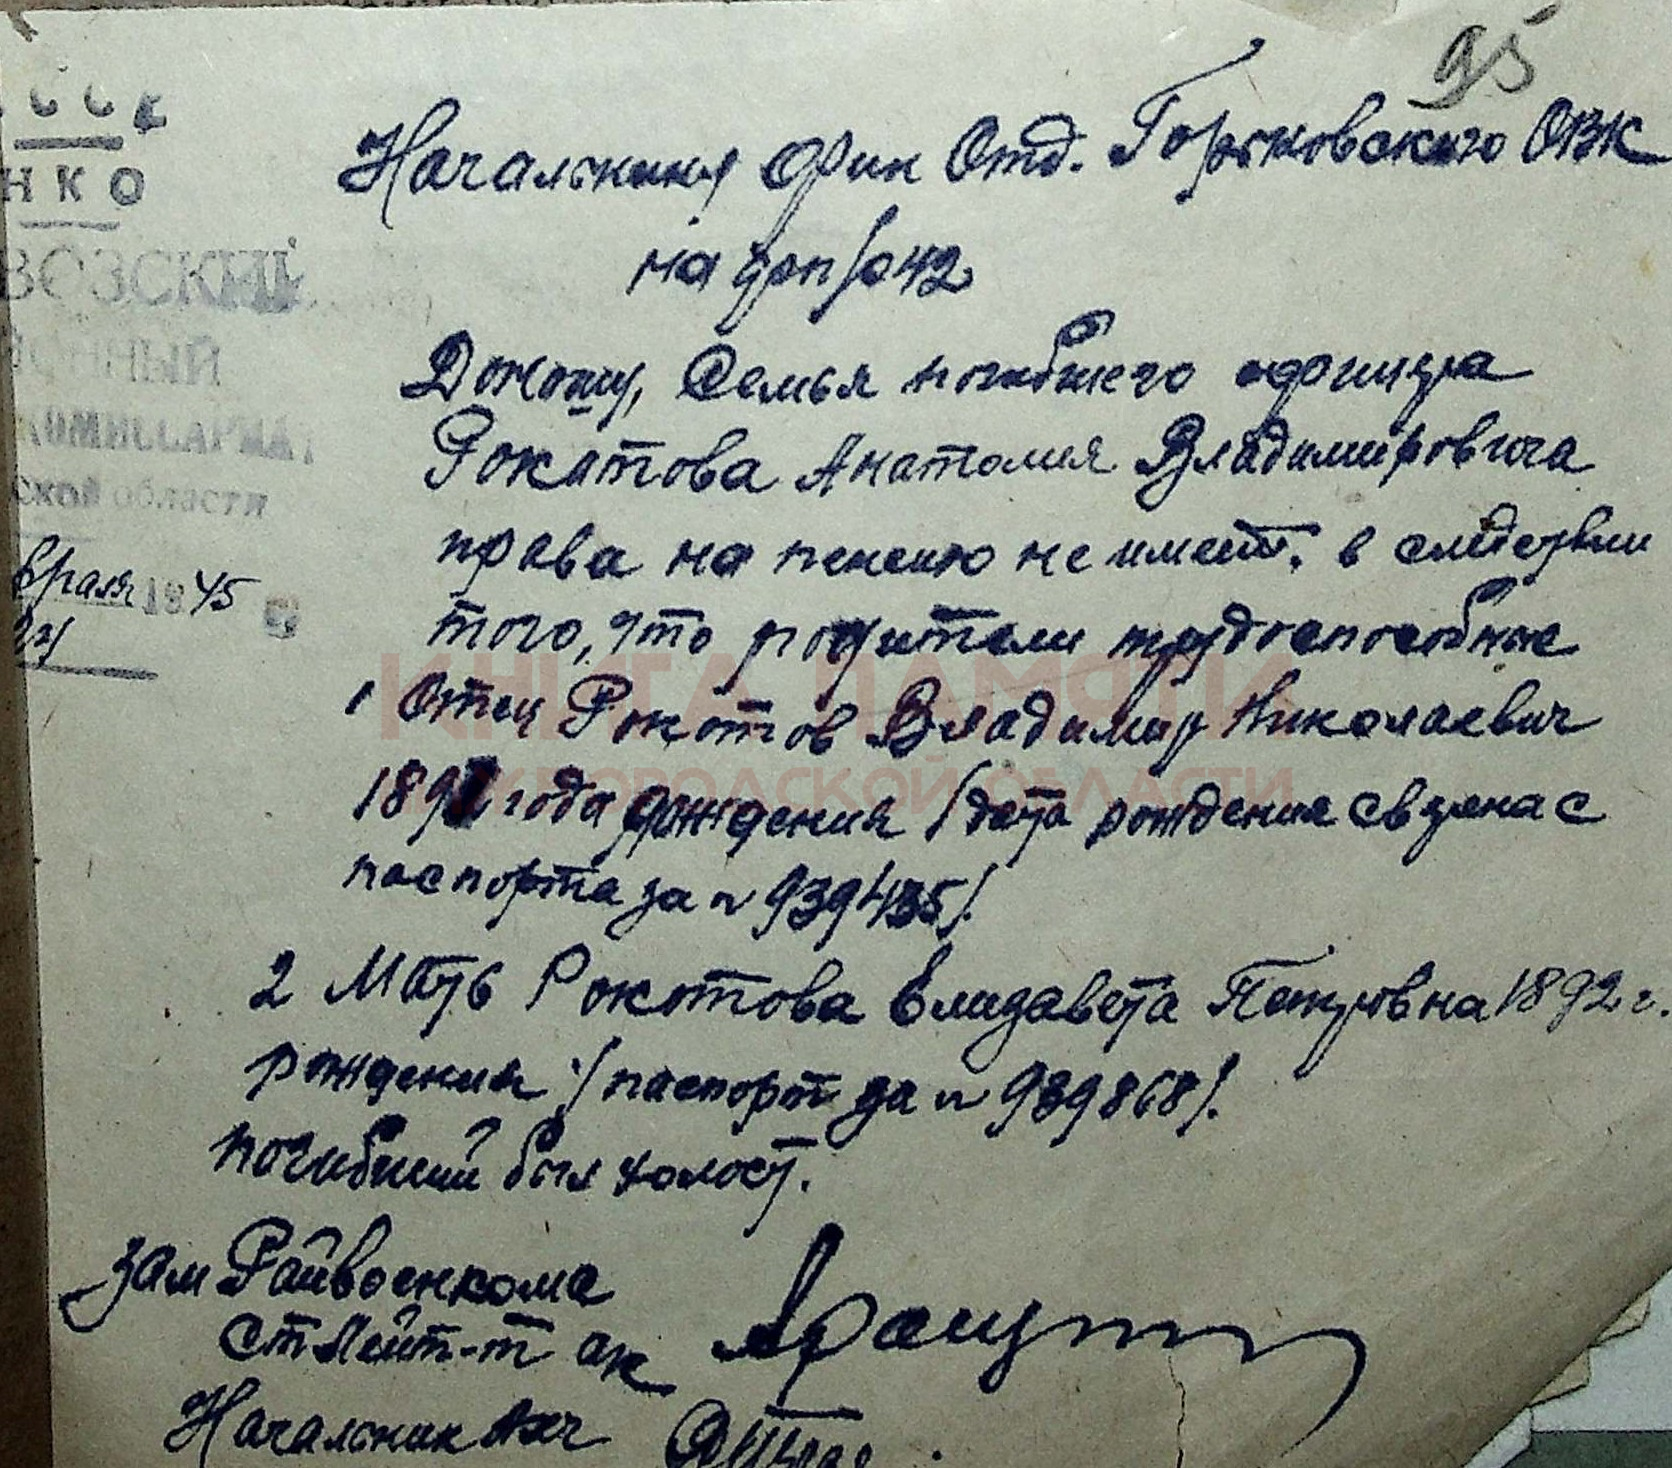 95
СССР
НКО
ВОЗСКИЙ
ННЫЙ
КОМИССАРИАТ
ской области
враля 1945 г
Начальнику Фин Отд. Горьковского ОВК
на
Доношу, Семья погибшего офицера
Рокатова Анатолия Владимировича
права на пенсию не имеет. в следствии
того, что родители трудоспособные
1 Отец Рокотов Владимир Николаевич
189 года рождения /дата рождения связана с
паспорта за № 939435/.
2 Мать Рокотова Елизавета Петровна 1892 г.
рождения /паспорт за № 939868/.
погибший был холост.
Зам Райвоенкома
ст Лейт-т ак
Начальник
КНИГА ПАМЯТИ
НИЖЕГОРОДСКОЙ ОБЛАСТИ